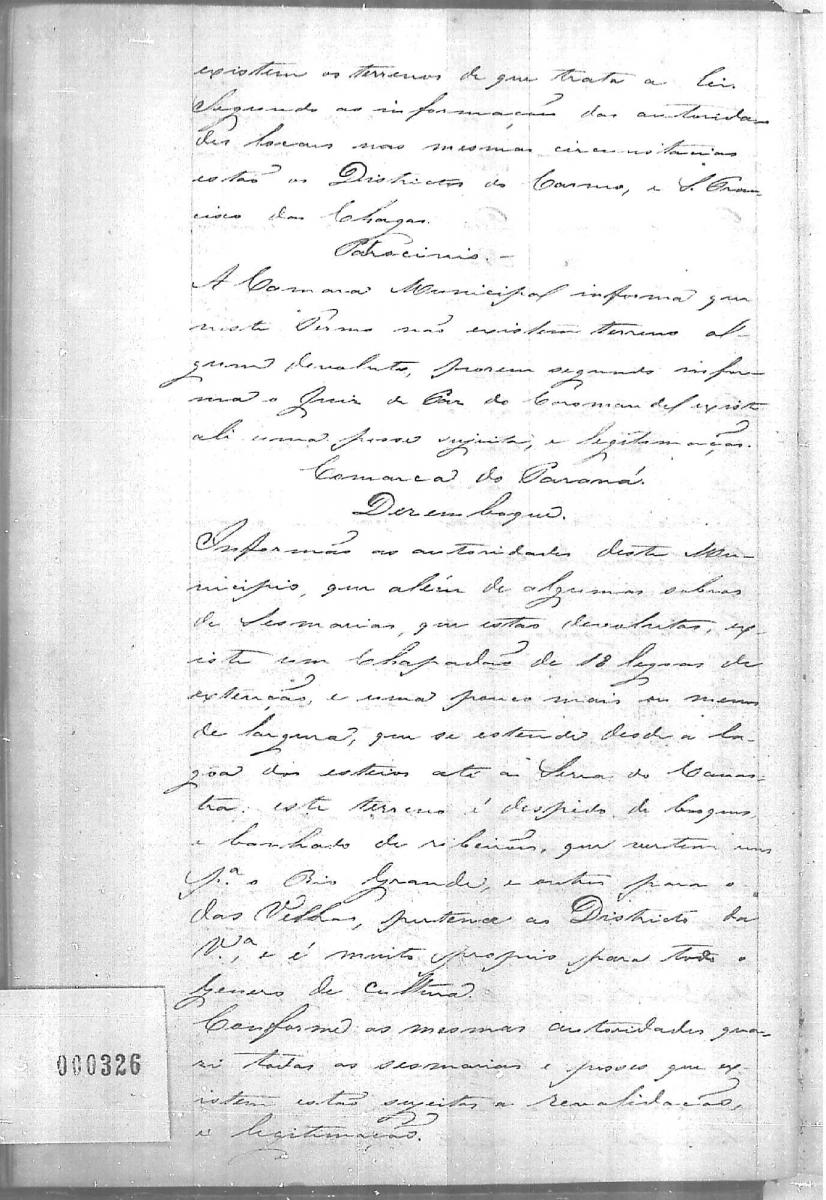 existem os terrenos de que trata a Lei.
Segundo as informações das autorida-
des locaes nas mesmas circunstacias
estão os Districtos do Carmo, e S. Fran-
cisco das Chagas.
Patrocinio.-
A Camara Municipal informa que
neste Termo não existem terreno al-
gum devoluto, porem segundo infor-
ma o Juiz de Paz do Coromandel existe
ali uma posse sujeita, e legitimação.
Comarca do Paraná.
Dezemboque.
Informão as autoridades deste Mu-
nicipio, que além de algumas sobras
de Sesmarias, que estão devolutas, ex-
iste um Chapadão de 18 legoas de
extenção, e uma pouco mais ou menos
de largura, que se estende desde a la-
goa dos esteios até a Serra da Canas-
tra: este terreno é despido de bosques
e banhado de ribeirões, que vertem uns
p.ª o Rio Grande, e outros para o
das Velhas, pertence ao Districto da
V.ª, e é muito propio para todo o
genero de cultura.
Conforme as mesmas autoridades qua-
si todas as sesmarias e posses que ex-
istem estão sujeitas a revalidação,
e legitimação.
000326